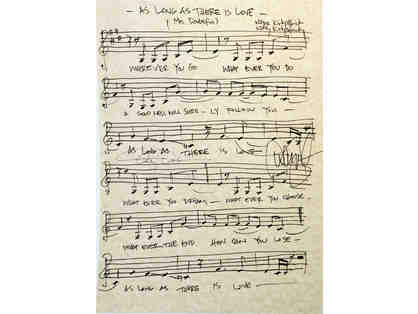 - AS LONG AS THERE IS LOVE -
(Mrs. Doubtfire) Wayne Kirkpatrick
Kirkpatrick
WHEREVER YOU GO WHAT EVER YOU DO
A GOOD WILL SURE - LY FOLLOW YOU -
AS LONG AS THERE IS LOVE
WHAT EVER YOU DREAM - WHAT EVER YOU CHOOSE -
WHAT EVER THE HOW CAN YOU LOSE -
AS LONG AS THERE IS LOVE